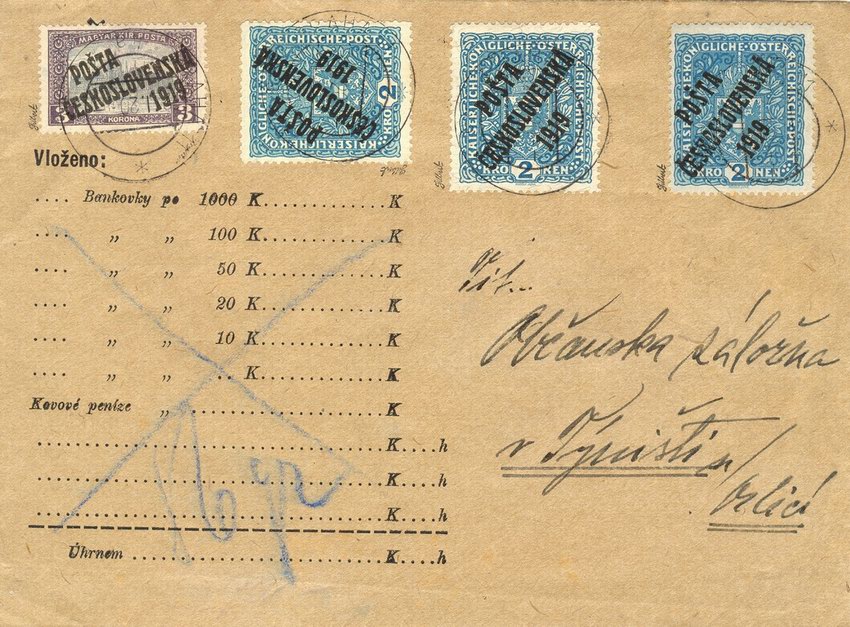 MAGYAR KIR. POSTA
POŠTA
ČESKOSLOVENSKÁ
1919
3 3
KORONA
KAISERLICHE KÖNIGLICHE ÖSTERREICHISCHE POST
POŠTA
ČESKOSLOVENSKÁ
1919
2
KRONEN
KAISERLICHE KÖNIGLICHE ÖSTERREICHISCHE POST
POŠTA
ČESKOSLOVENSKÁ
1919
KRO 2 NEN
KAISERLICHE KÖNIGLICHE ÖSTERREICHISCHE POST
POŠTA
ČESKOSLOVENSKÁ
1919
KRO 2 NEN
PRAHA
Gilbert
Vloženo:
.... Bankovky po 1000 K...............K
.... „ „ 100 K...............K
.... „ „ 50 K...............K
.... „ „ 20 K...............K
.... „ „ 10 K...............K
.... „ „ .. K...............K
Kovové peníze „ ......................K
...............................K....h
...............................K....h
...............................K....h
Úhrnem ...............................K....h
Tit...
Občanska záložna
v Týništi n/
Orlicí